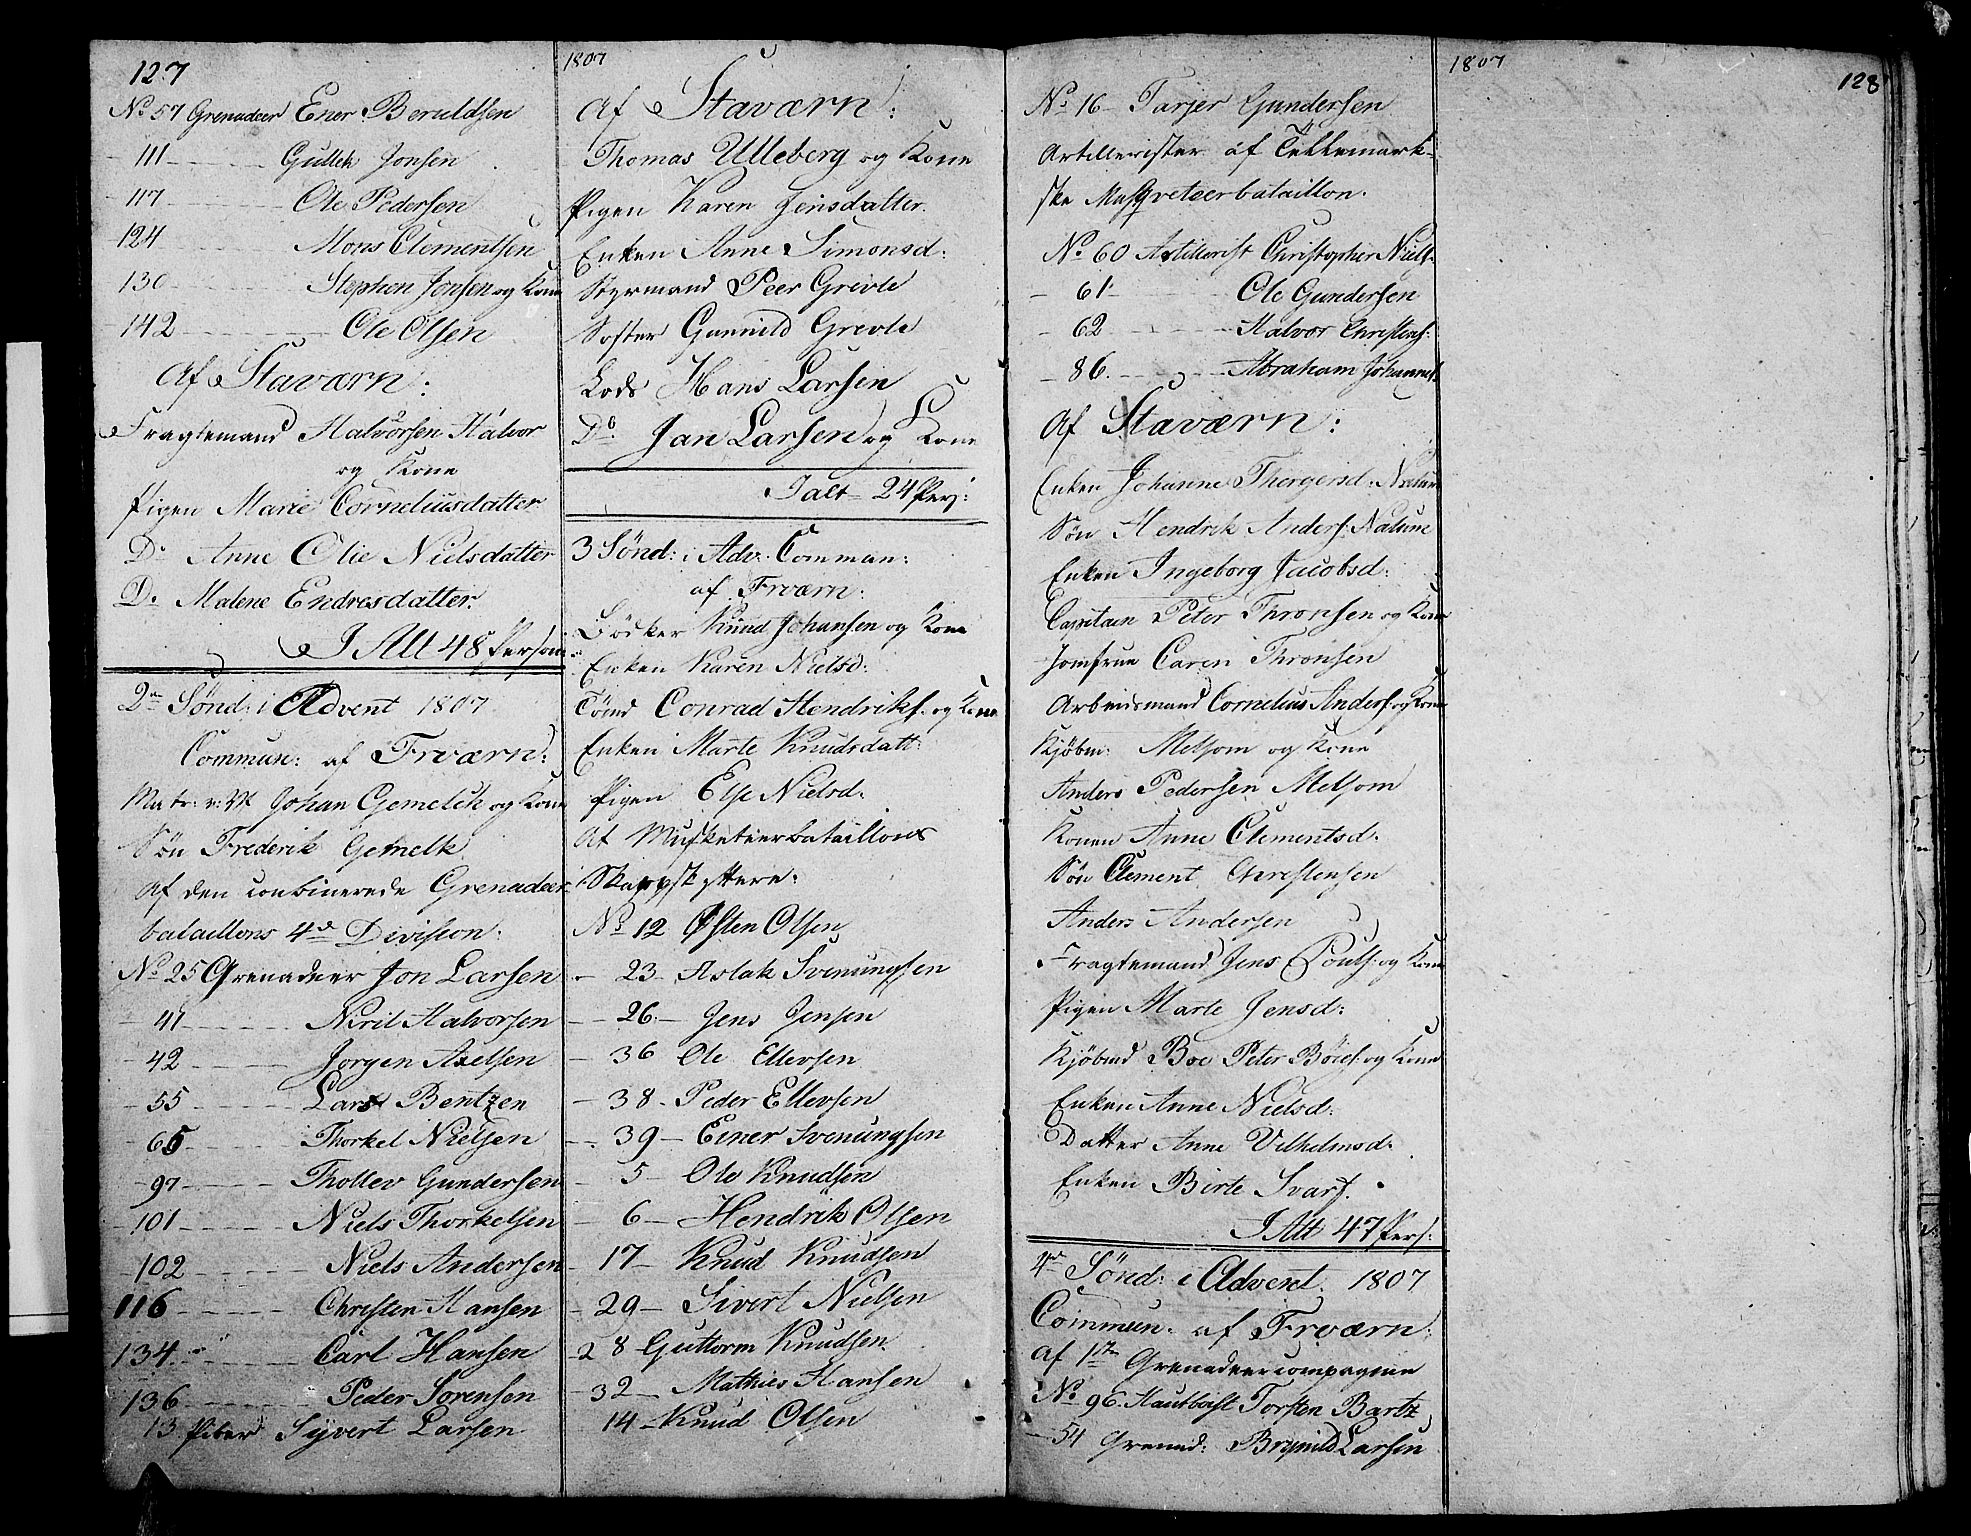 127
No 57 Grenadeer Ener Beruldsen
- 111 Gullik Jonsen
- 117 Ole Pedersen
- 124 Mons Clementsen
130 Stephen Jonsen og Kone
- 142 Ole Olsen
Af Staværn:
Fragtemand Halvorsen Halvor
og Kone
Pigen Marie Corneliusdatter
Do Anne Olie Nielsdatter
Do Malene Endresdatter
I Alt 48 Person:
2n Sønd: i Advent 1807
Commun: af Frværn:
Matr: v: W Johan Gemelck og Kone
Søn Frederik Gemelk
Af den combinerede Grenadeer
bataillons 4de Division:
No 25 Grenadeer Jon Larsen
- 41 Niril Halvorsen
- 42 Jørgen Axelsen
- 55 Lars Bentzen
- 65 Thorkel Nielsen
- 97 Thollev Gundersen
- 101 Niels Thorkelsen
- 102 Niels Andersen
116 Christen Hansen
134 Carl Hansen
136 Peder Sørensen
13 Piber Syvert Larsen
1807
Af Staværn:
Thomas Ulleberg og Kone
Pigen Karen Jensdatter
Enken Anne Simonsd:
Styrmand Peer Grevle
Søster Gunnild Grevle
Lods Hans Larsen
Do Jan Larsen og Kone
I alt 24 Pers:
3 Sønd: i Adv. Commun:
af Frværn:
Bödker Knud Johansen og Kone
Enken Karen Nielsd:
Tömd Conrad Hendriks: og Kone
Enken Marte Knudsdatt:
Pigen Else Nielsd:
Af Musketeerbataillons
Skarpskyttere:
No 12 Østen Olsen
- 23 - Aslak Svenungsen
- 26 - Jens Jensen
- 36 Ole Ellevsen
- 38 - Peder Ellevsen
- 39 - Einer Svenungsen
- 5 - Ole Knudsen
- 6 - Hendrik Olsen
- 17 - Knud Knudsen
- 29 - Sivert Nielsen
- 28 Guttorm Knudsen
- 32 - Mathies Hansen
14 - Knud Olsen
No 16 - Tarjer Gundersen
Artillerister af Tellemark-
ske Musqveteerbataillon.
No 60 Artillerist Christopher Niels:
- 61 Ole Gundersen
- 62 Halvor Christens:
- 86 Abraham Johannes:
Af Staværn:
Enken Johanne Thorgersd: Natune
Søn Hendrik Anders: Natune
Enken Ingeborg Jacobsd:
Capitain Peter Thronsen og Kone
Jomfrue Caren Thronsen
Arbeidsmand Cornelius Anders: og Kone
Kjöbm: Melsom og Kone
Anders Pedersen Melsom
Konen Anne Clementsd:
Søn Clement Christensen
Anders Andersen
Fragtemand Jens Pouls: og Kone
Pigen Marte Jensd:
Kjöbmd Boe Peter Böies: og Kone
Enken Anne Nielsd:
Datter Anne Vilhelmsd:
Enken Birte Svars.
I Alt 47 Pers:
4de Sønd: i Advent: 1807
Commun: af Frværn:
Af 1ste Grenadeercompagnie
No 96. Hautboist Torsten Bartz
- 54 Grenad: Brynild Larsen
1807
128